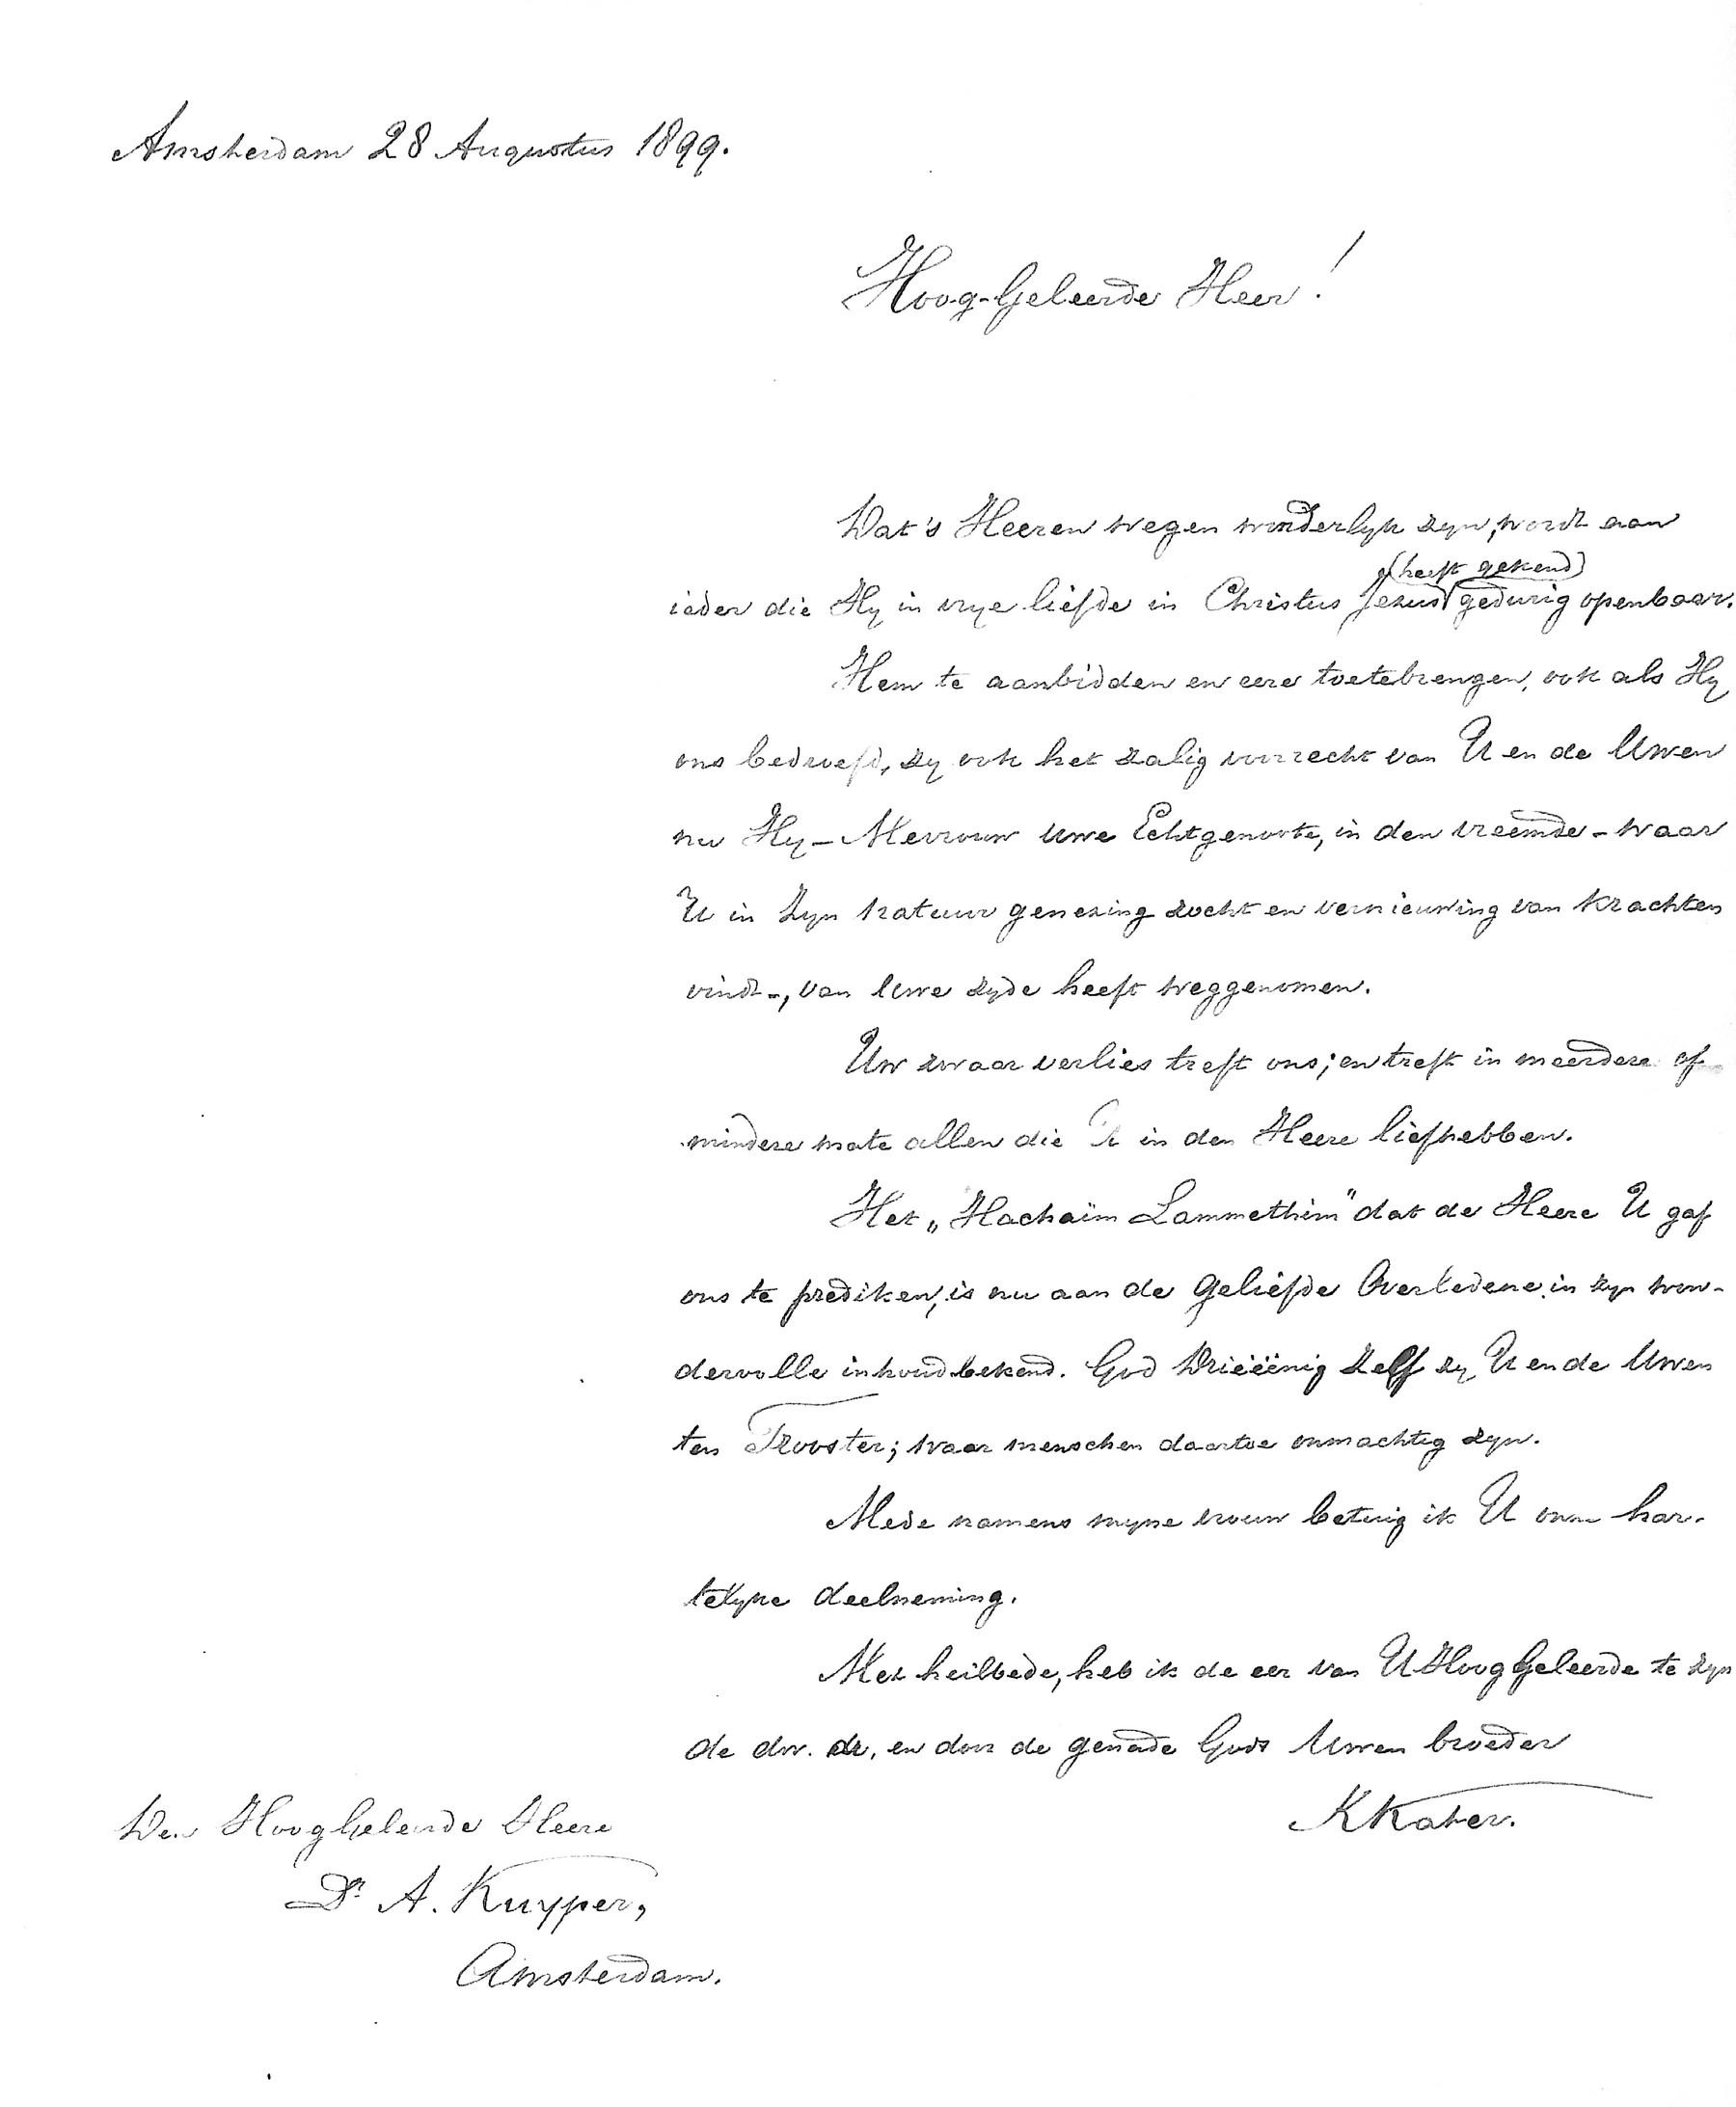 Amsterdam 28 Augustus 1899.
Hoog-Geleerde Heer!
Dat 's Heeren wegen wonderlyk zyn, wordt aan
(heeft gekend)
ieder die Hy in vrye liefde in Christus Jezus gedurig openbaar.
Hem te aanbidden en eere toetebrengen, ook als Hy
ons bedroefd, zy ook het zalig voorrecht van U en de Uwen
nu Hy – Mevrouw Uwe Echtgenoote, in den vreemde – waar
U in Zyn natuur genezing zocht en vernieuwing van krachten
vindt –, van Uwe zyde heeft weggenomen.
Uw zwaar verlies treft ons; en treft in meerdere of
mindere mate allen die U in den Heere liefhebben.
Het „Hachaïm Lammethim" dat de Heere U gaf
ons te prediken, is nu aan de Geliefde Overledene in zyn won-
dervolle inhoud bekend. God Drieëenig Zelf zy U en de Uwen
ten Trooster; waar menschen daartoe onmachtig zyn.
Mede namens myne vrouw betuig ik U onze har-
telyke deelneming.
Met heilbede, heb ik de eer van U HoogGeleerde te zyn
de dw. dr, en door de genade Gods Uwen broeder
KKater.
Den HoogGeleerde Heere
Dr. A. Kuyper,
Amsterdam.